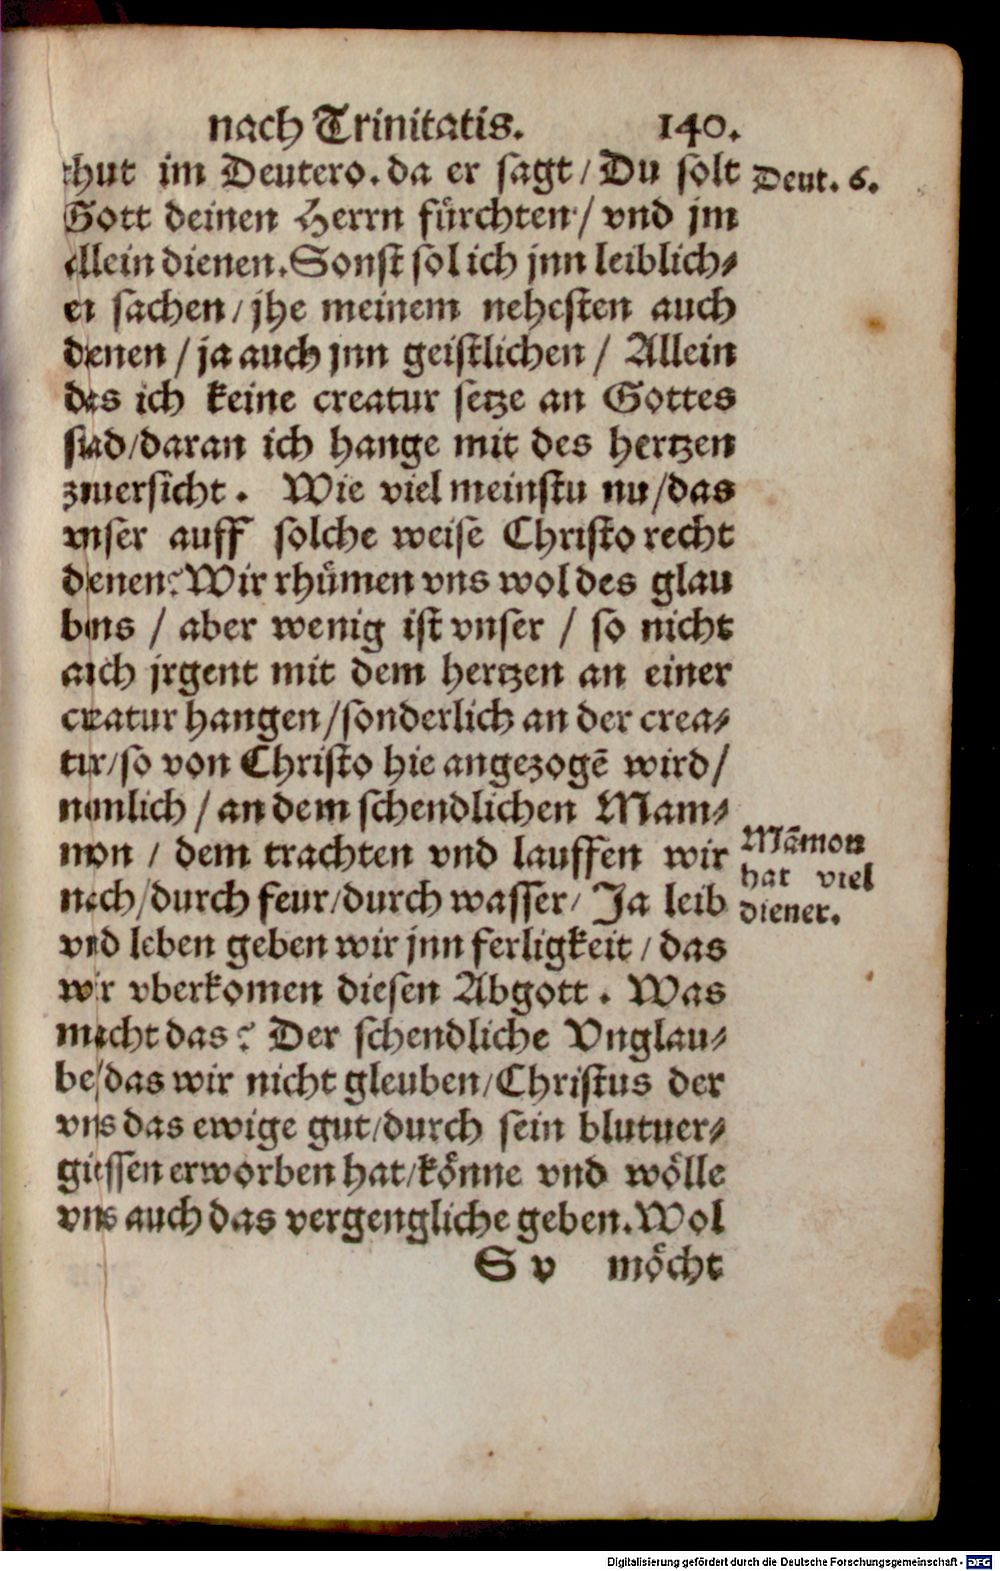 nach Trinitatis. 140.
thut im Deutero. da er sagt / Du solt
Deut. 6.
Gott deinen Herrn fürchten / vnd jm
allein dienen. Sonst sol ich jnn leiblich⸗
en sachen / jhe meinem nehesten auch
dienen / ja auch jnn geistlichen / Allein
das ich keine creatur setze an Gottes
stad / daran ich hange mit des hertzen
zuuersicht. Wie viel meinstu nu / das
vnser auff solche weise Christo recht
dienen? Wir rhümen vns wol des glau
bens / aber wenig ist vnser / so nicht
auch jrgent mit dem hertzen an einer
creatur hangen / sonderlich an der crea⸗
tur / so von Christo hie angezogē wird /
nemlich / an dem schendlichen Mam⸗
mon / dem trachten vnd lauffen wir
Māmon
hat viel
diener.
nach / durch feur / durch wasser / Ja leib
vnd leben geben wir jnn ferligkeit / das
wir vberkomen diesen Abgott. Was
macht das? Der schendliche Vnglau⸗
be / das wir nicht gleuben / Christus der
vns das ewige gut / durch sein blutuer⸗
giessen erworben hat / könne vnd wölle
vns auch das vergengliche geben. Wol
S v möcht
Digitalisierung gefördert durch die Deutsche Forschungsgemeinschaft - DFG